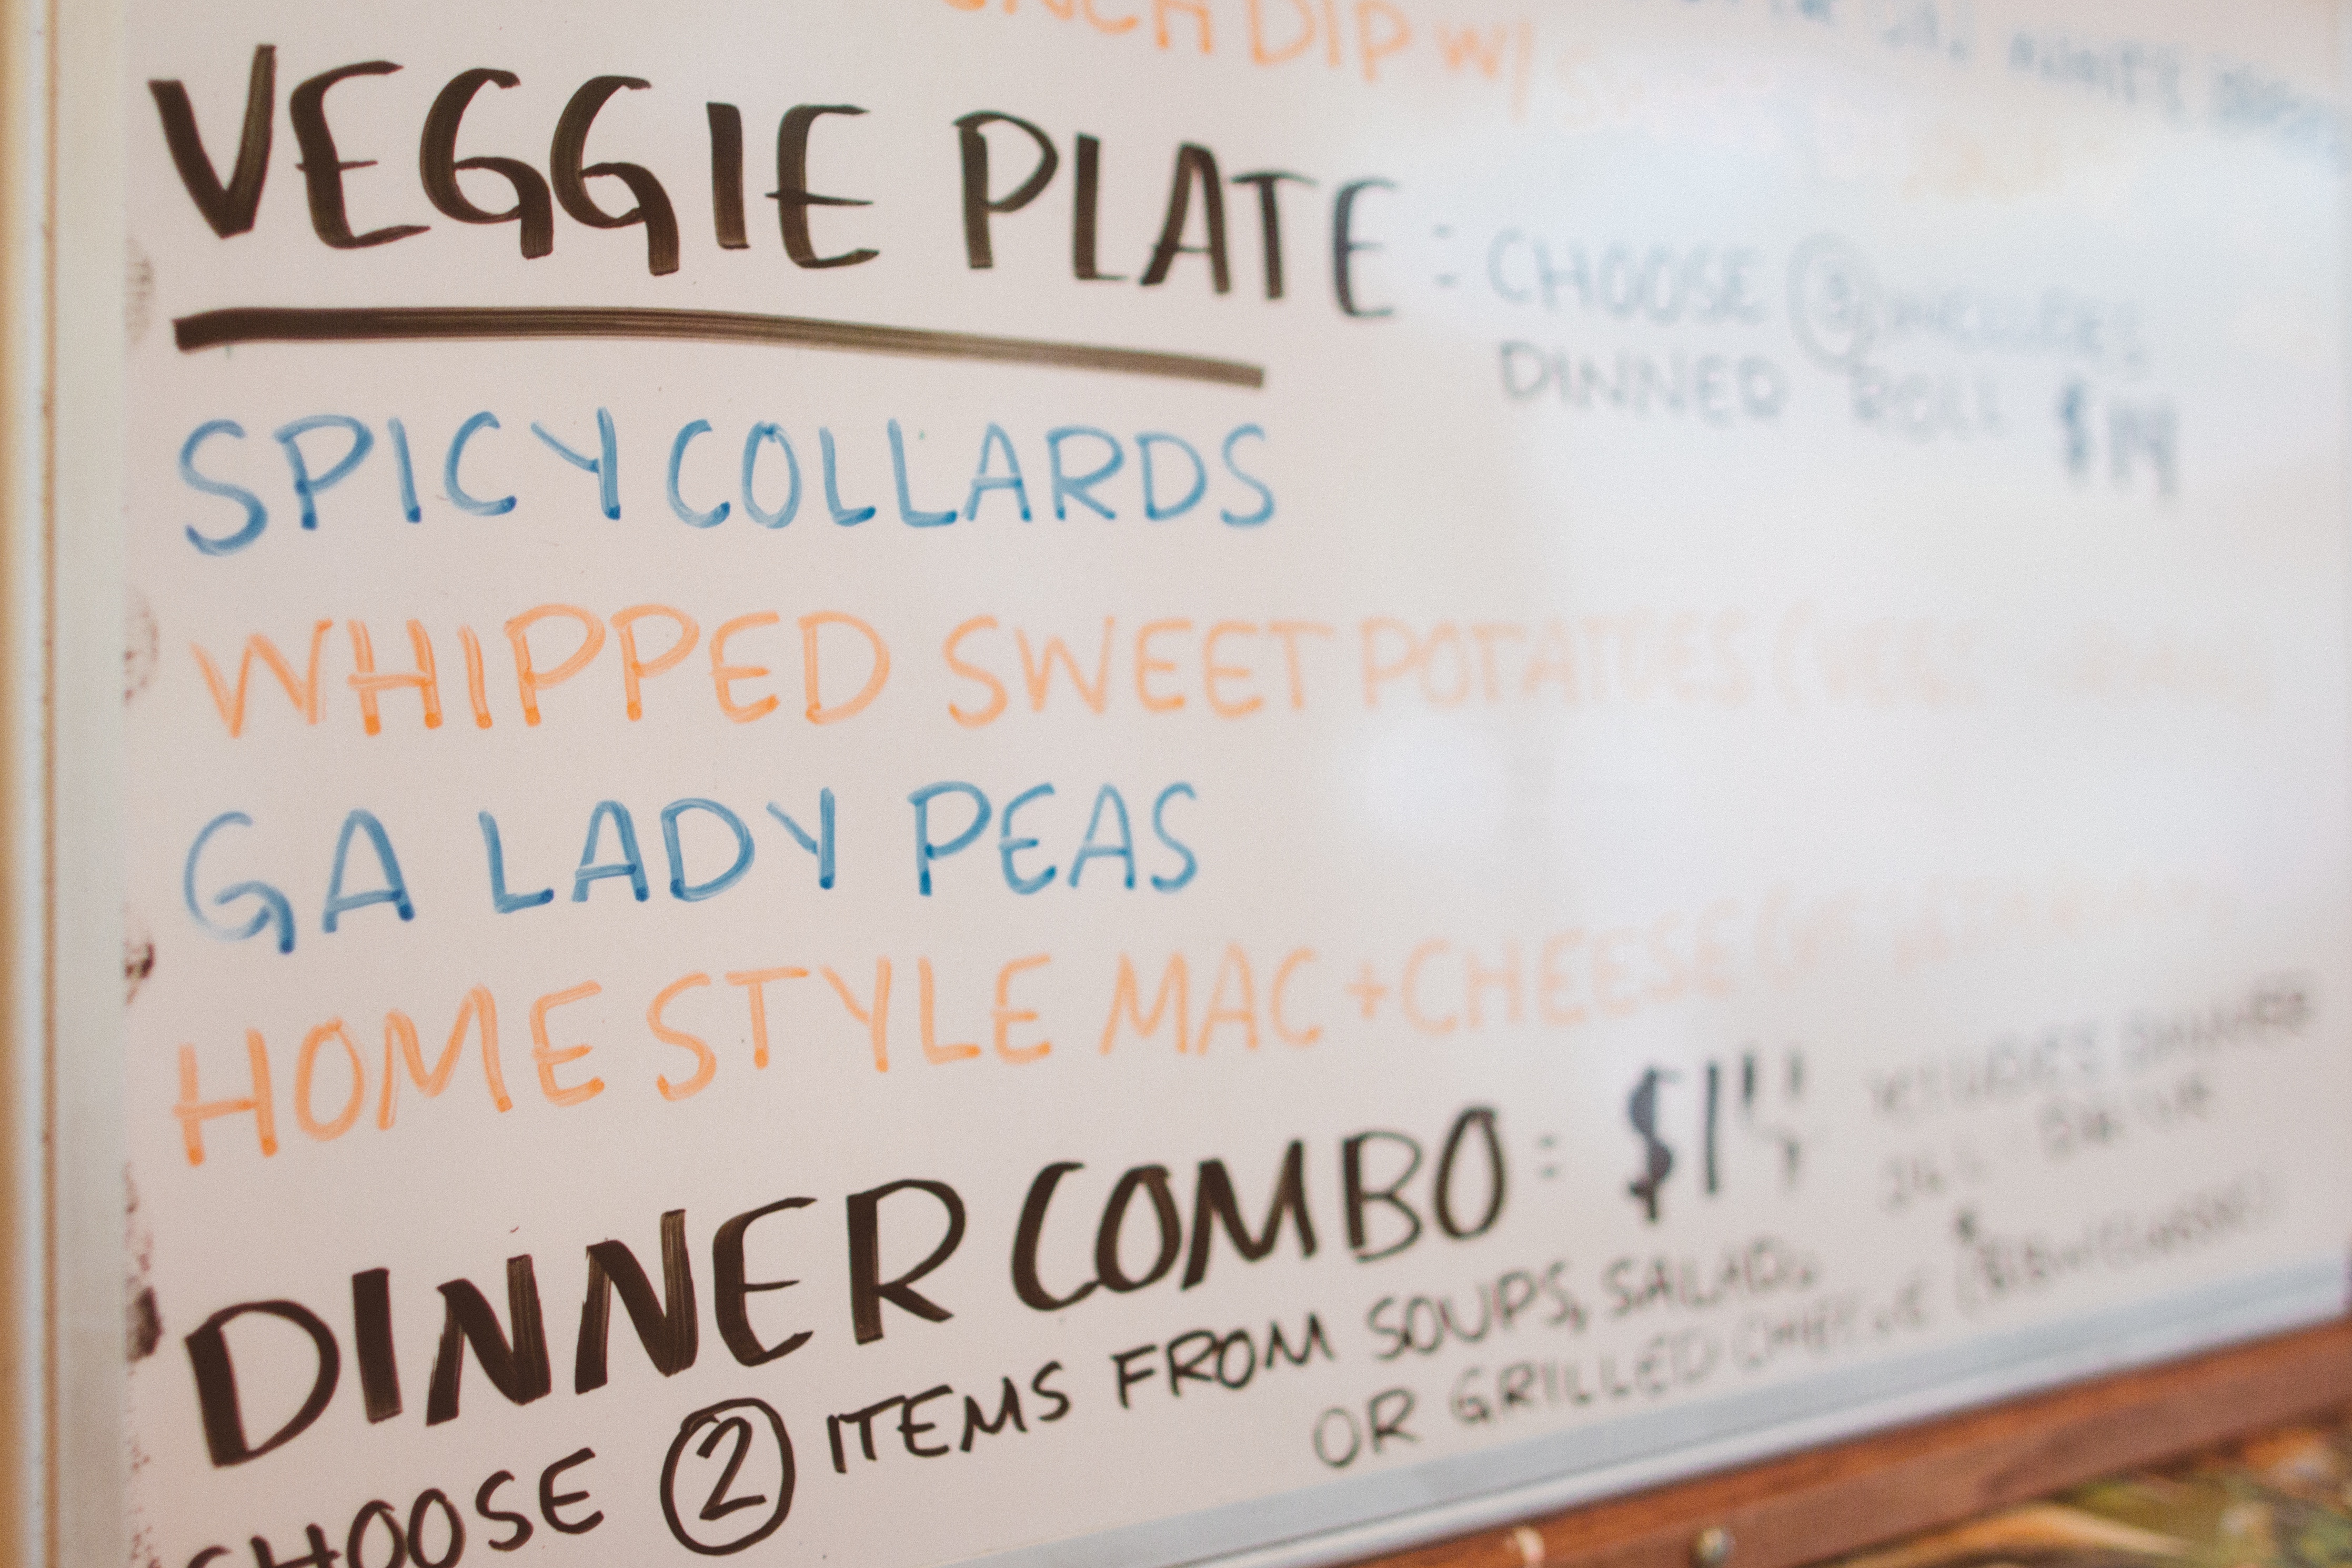 DIP W/
VEGGIE PLATE : CHOOSE 3 INCLUDES
DINNER ROLL $14
SPICY COLLARDS
WHIPPED SWEET POTATOES
GA LADY PEAS
HOMESTYLE MAC + CHEESE
DINNER COMBO : $14 INCLUDES DINNER
CHOOSE 2 ITEMS FROM SOUPS, SALAD,
OR GRILLED CHEESE